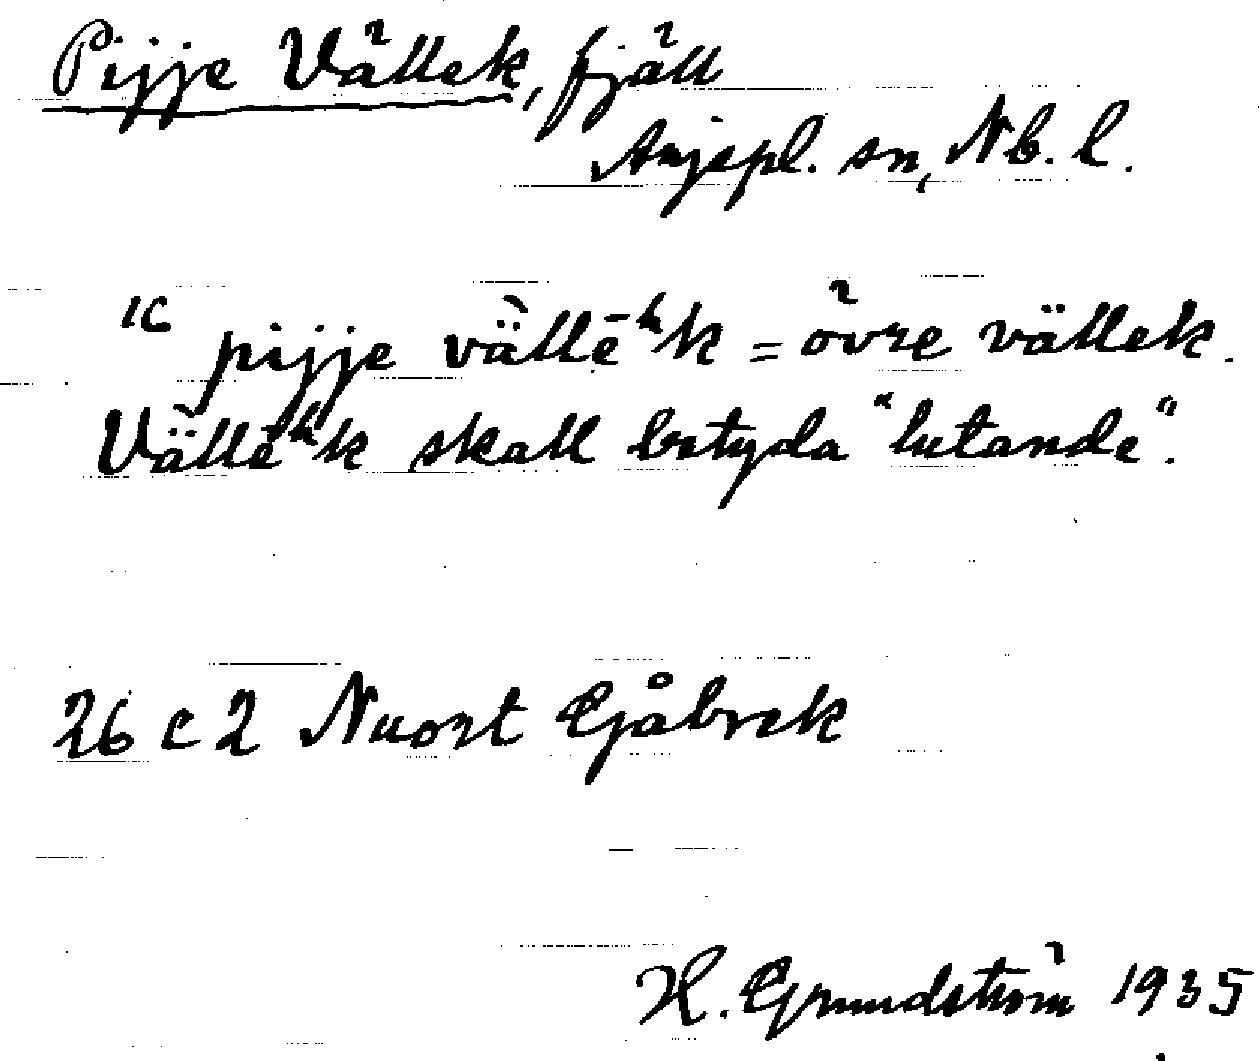 Pijje Vällek, fjäll
Arjepl. sn, Nb. l.
16 pijje vällē<sup>h</sup>k = övre vällek.
Vällē<sup>h</sup>k skall betyda "lutande".
26 C 2 Nuort Gåbrek
H. Grundström 1935